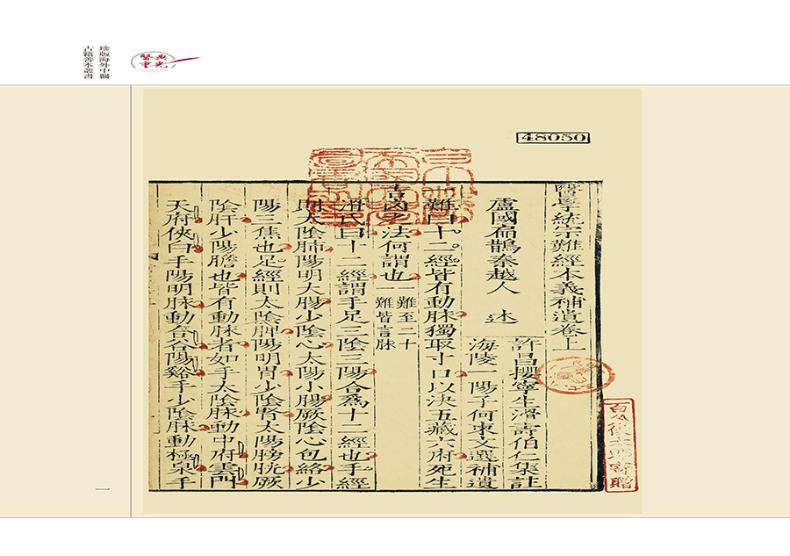 珍版海外中醫
古籍善本叢書
48050
醫學統宗難經本義補遺卷上
盧國扁鵲秦越人 述
許昌攖寧生滑壽伯仁集註
海陵一陽子何柬文選補遺
難曰十二經皆有動脉獨取寸口以決五藏六府死生
吉凶之法何謂也 一難至二十
難皆言脉
滑氏曰十二經謂手足三陰三陽合為十二經也手經
則太陰肺陽明大腸少陰心太陽小腸厥陰心包絡少
陽三焦也足經則太陰脾陽明胃少陰腎太陽膀胱厥
陰肝少陽膽也皆有動脉者如手太陰脉動中府雲門
天府俠白手陽明脉動合谷陽谿手少陰脉動極泉手
寄贈
一